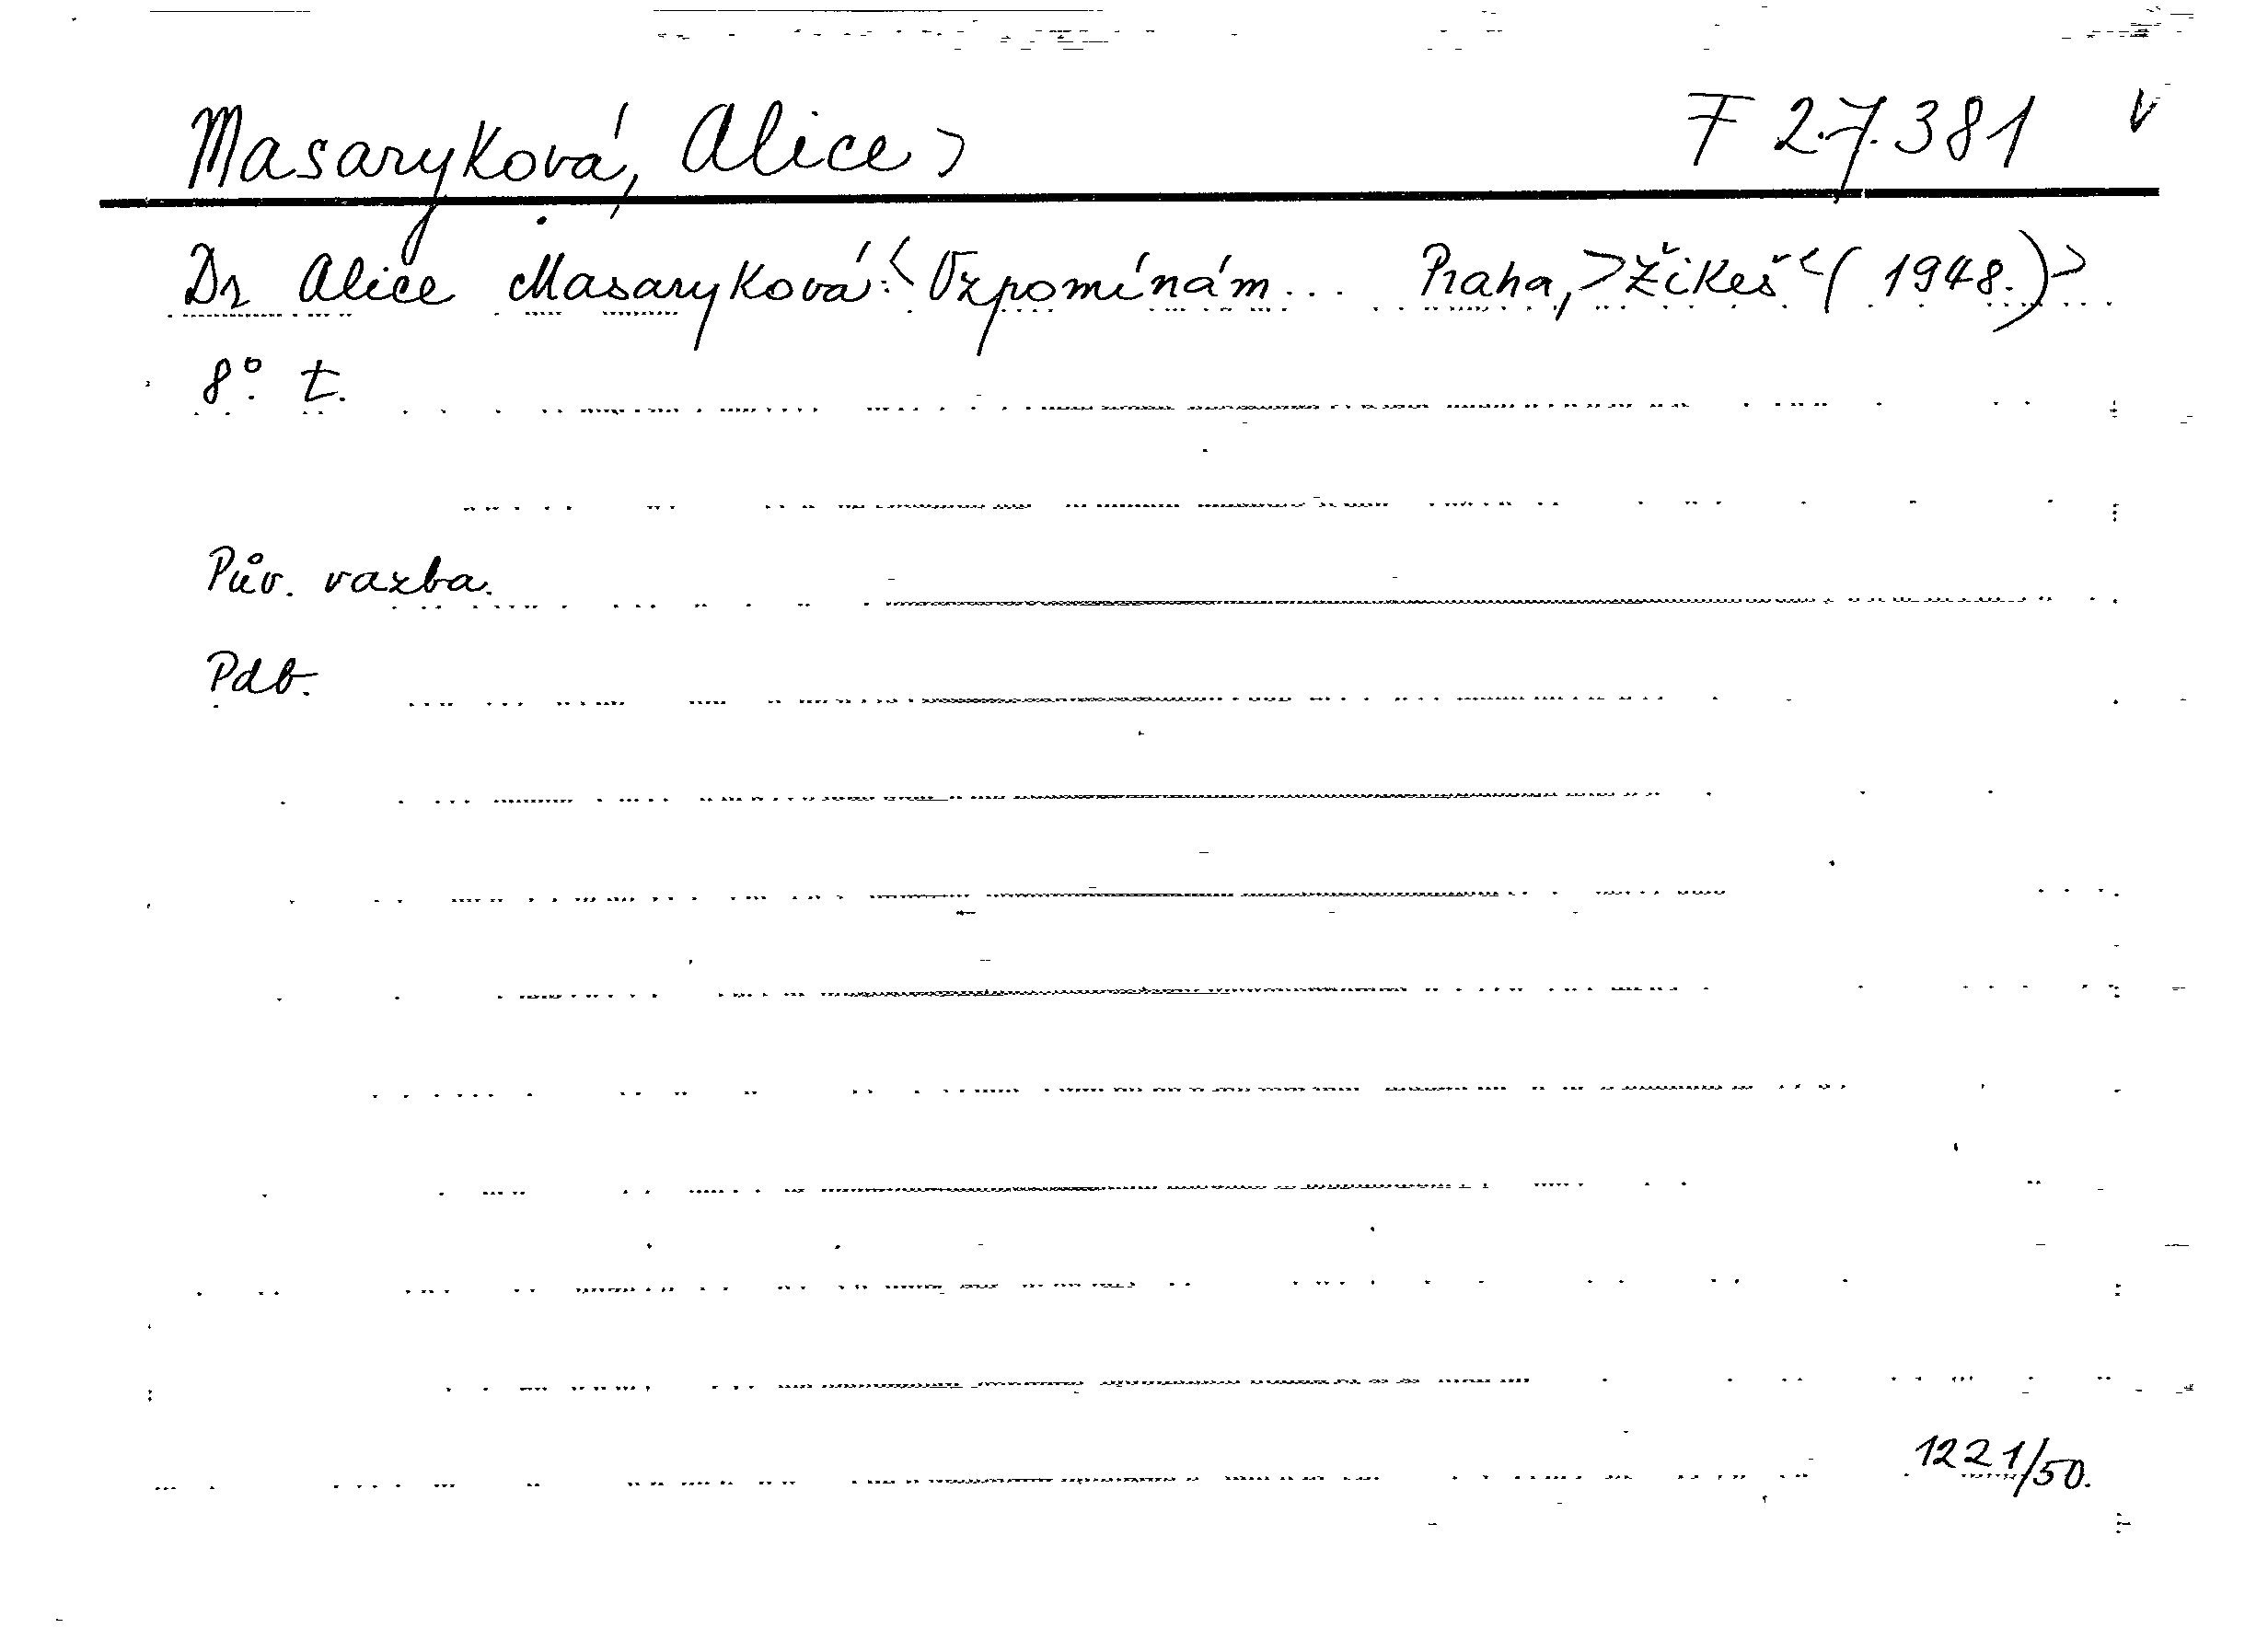 Masaryková, Alice> F 27.381 v
Dr Alice Masaryková:<Vzpomínám... Praha,>Žikeš<(1948.)>
8° t.
Pův. vazba.
Pdb.
1221/50.